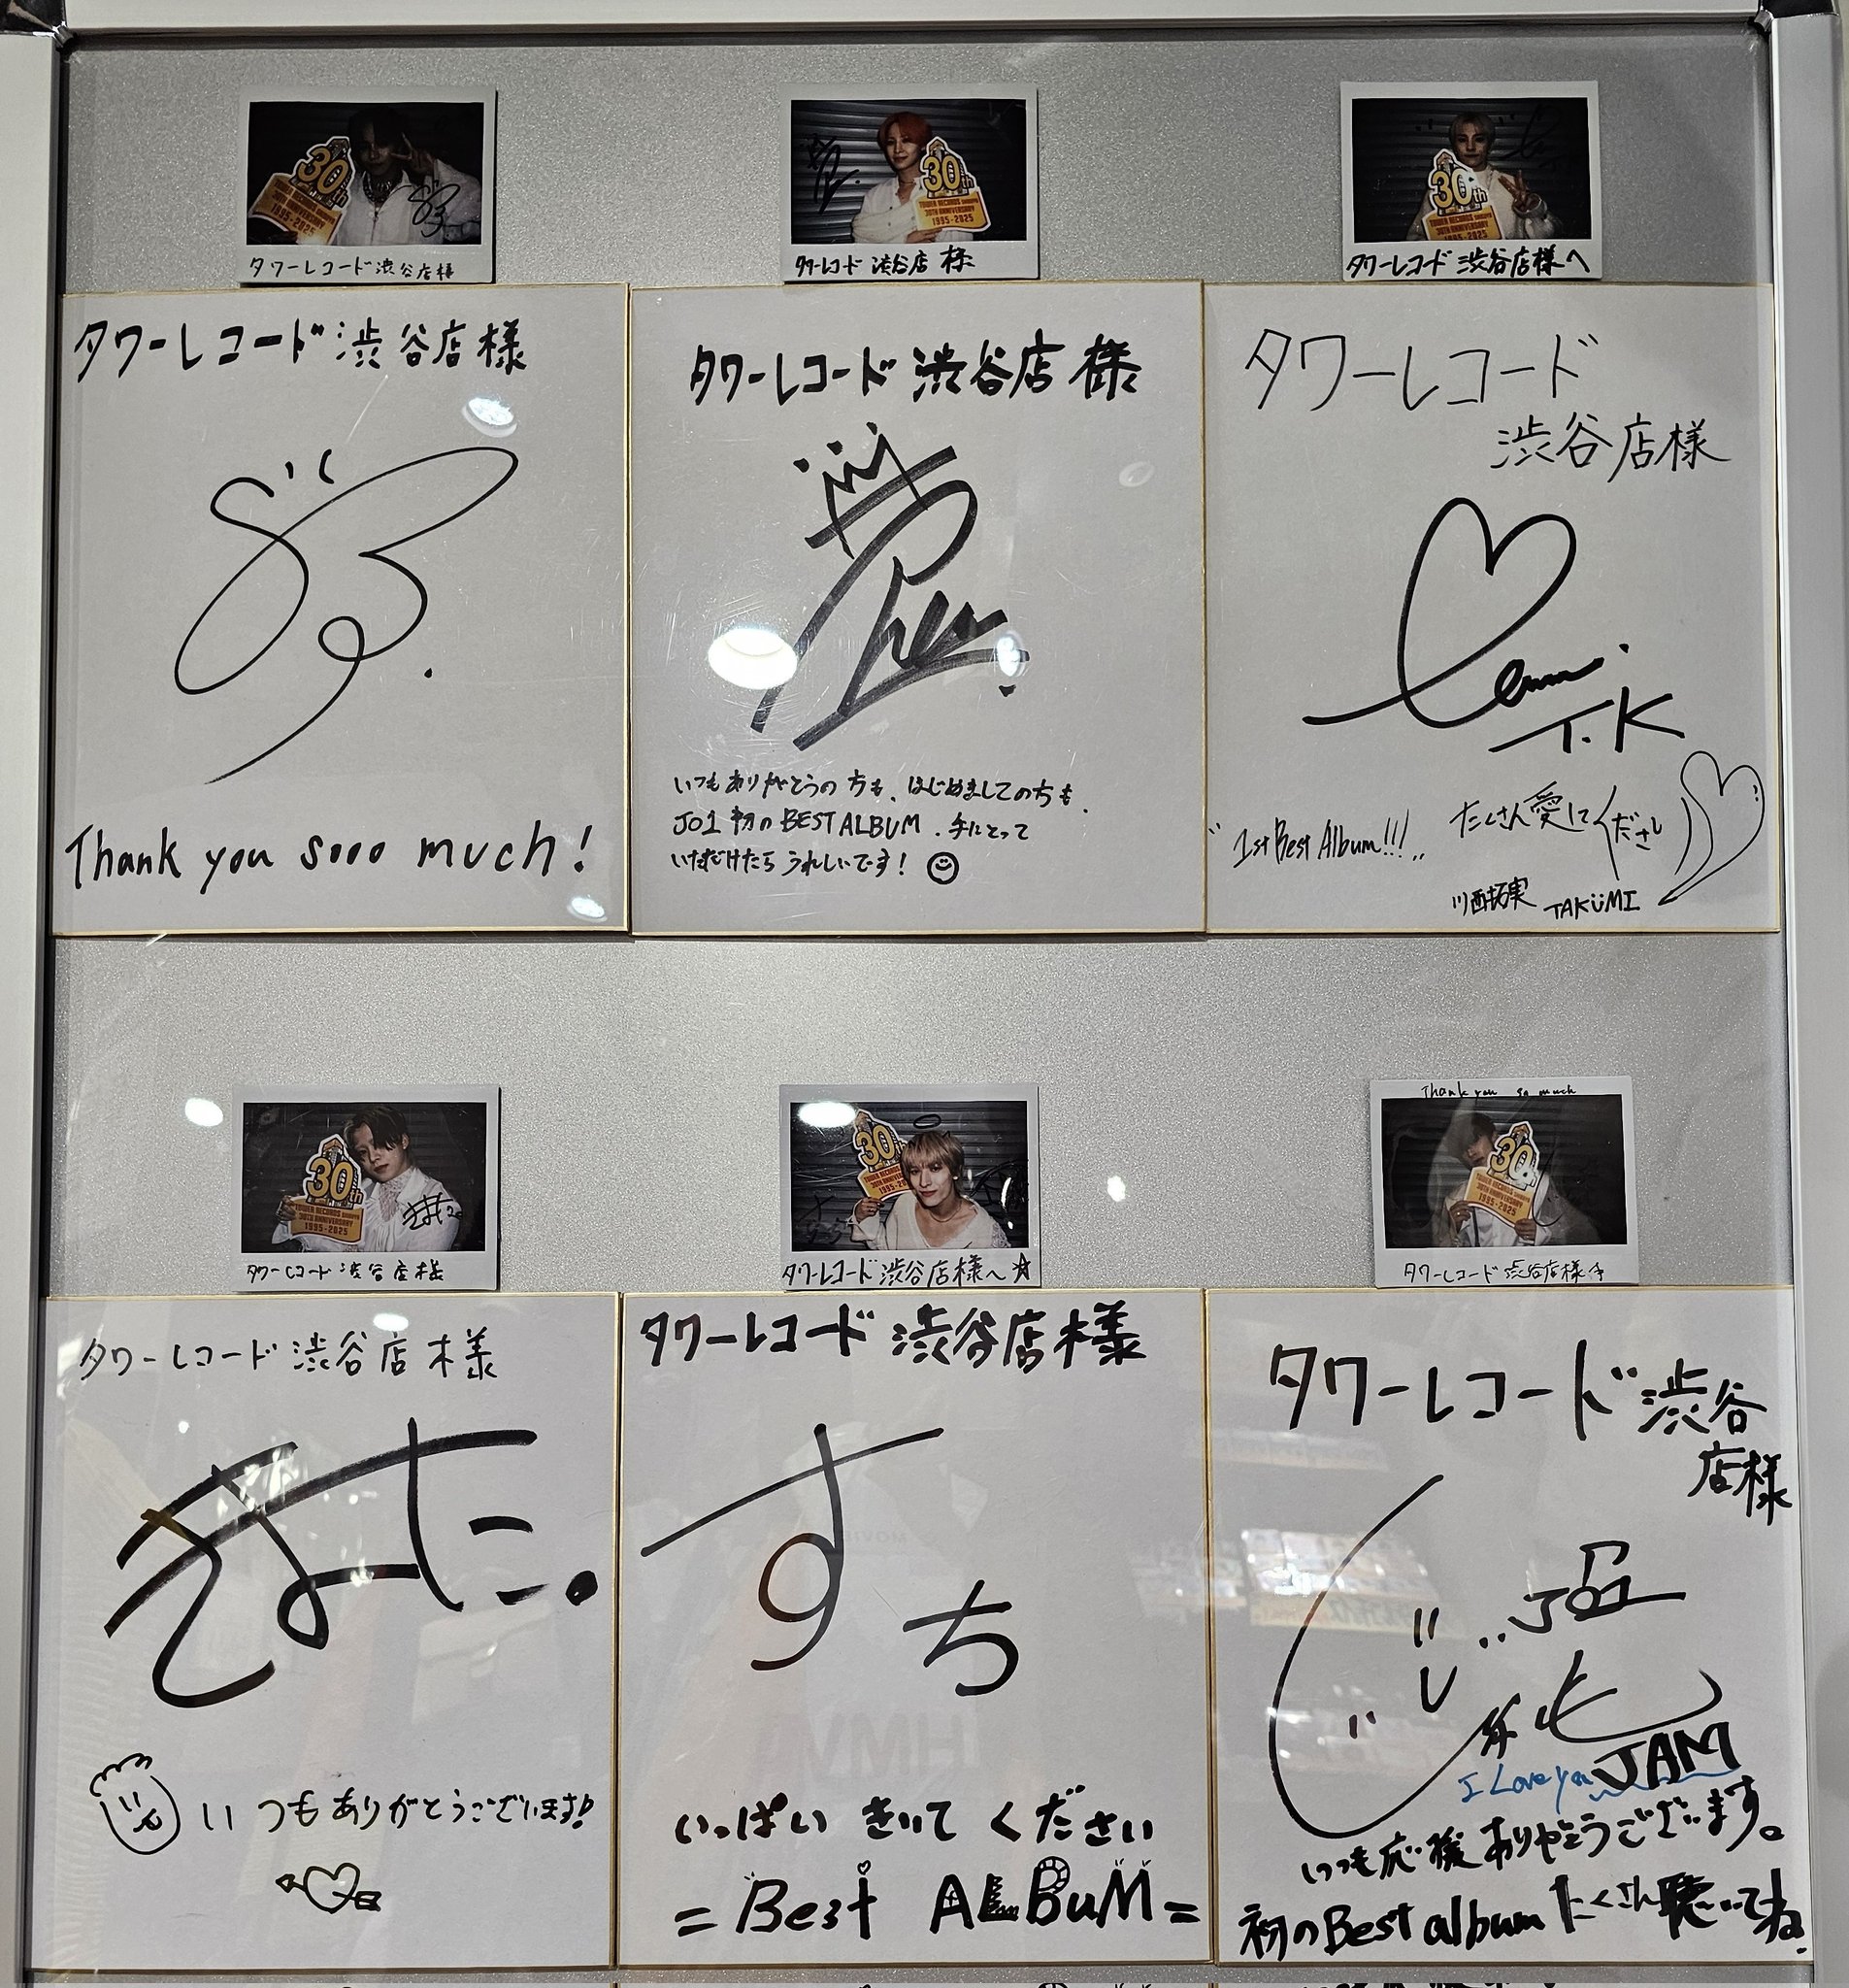 30th
1995-2025
タワーレコード渋谷店様
30th
TOWER RECORDS SHIBUYA
30TH ANNIVERSARY
1995-2025
タワーレコード 渋谷店 様
30th
TOWER RECORDS SHIBUYA
30TH ANNIVERSARY
1995-2025
タワーレコード 渋谷店様へ
タワーレコード 渋谷店様
Thank you sooo much!
タワーレコード 渋谷店 様
いつもありがとうの方も、はじめましての方も、
JO1 初の BEST ALBUM、手にとって
いただけたらうれしいです!
タワーレコード
渋谷店様
T.K
"1st Best Album!!!"
たくさん愛してください
川西拓実 TAKUMI
30th
TOWER RECORDS SHIBUYA
30TH ANNIVERSARY
1995-2025
タワーレコード 渋谷店様
30
タワーレコード 渋谷店様へ☆
Thank you so much
30th
TOWER RECORDS SHIBUYA
30TH ANNIVERSARY
1995-2025
タワーレコード 渋谷店様
タワーレコード 渋谷店 様
きまた.
いつもありがとうございます!
タワーレコード 渋谷店様
すち
いっぱい きいて ください
=Best ALBuM=
タワーレコード 渋谷
店様
JO1
I Love you JAM
いつも応援ありがとうございます。
初のBest album たくさん聴いてね